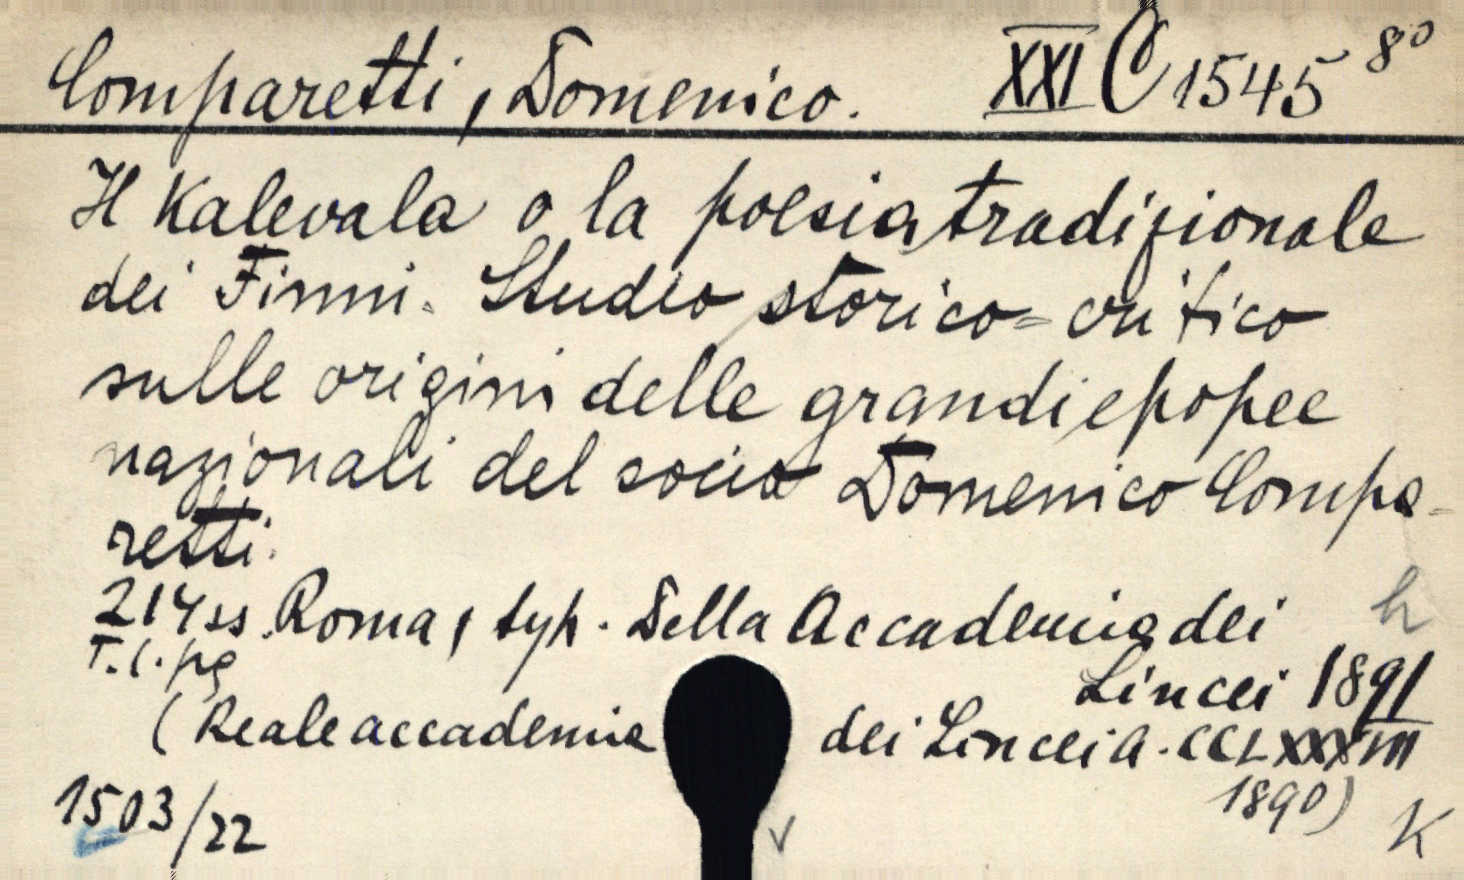 Comparetti, Domenico. XXI C 1545 8°
Il Kalevala o la poesia tradizionale
dei Finni. Studio storico=critico
sulle origini delle grandi epopee
nazionali del socio Domenico Compa-
retti.
214 ss. Roma, typ. Della Accademia dei h
T.l.pg Lincei 1891
(Reale accademia dei Lincei A. CCLXXXVIII
1890)
1503/22 K